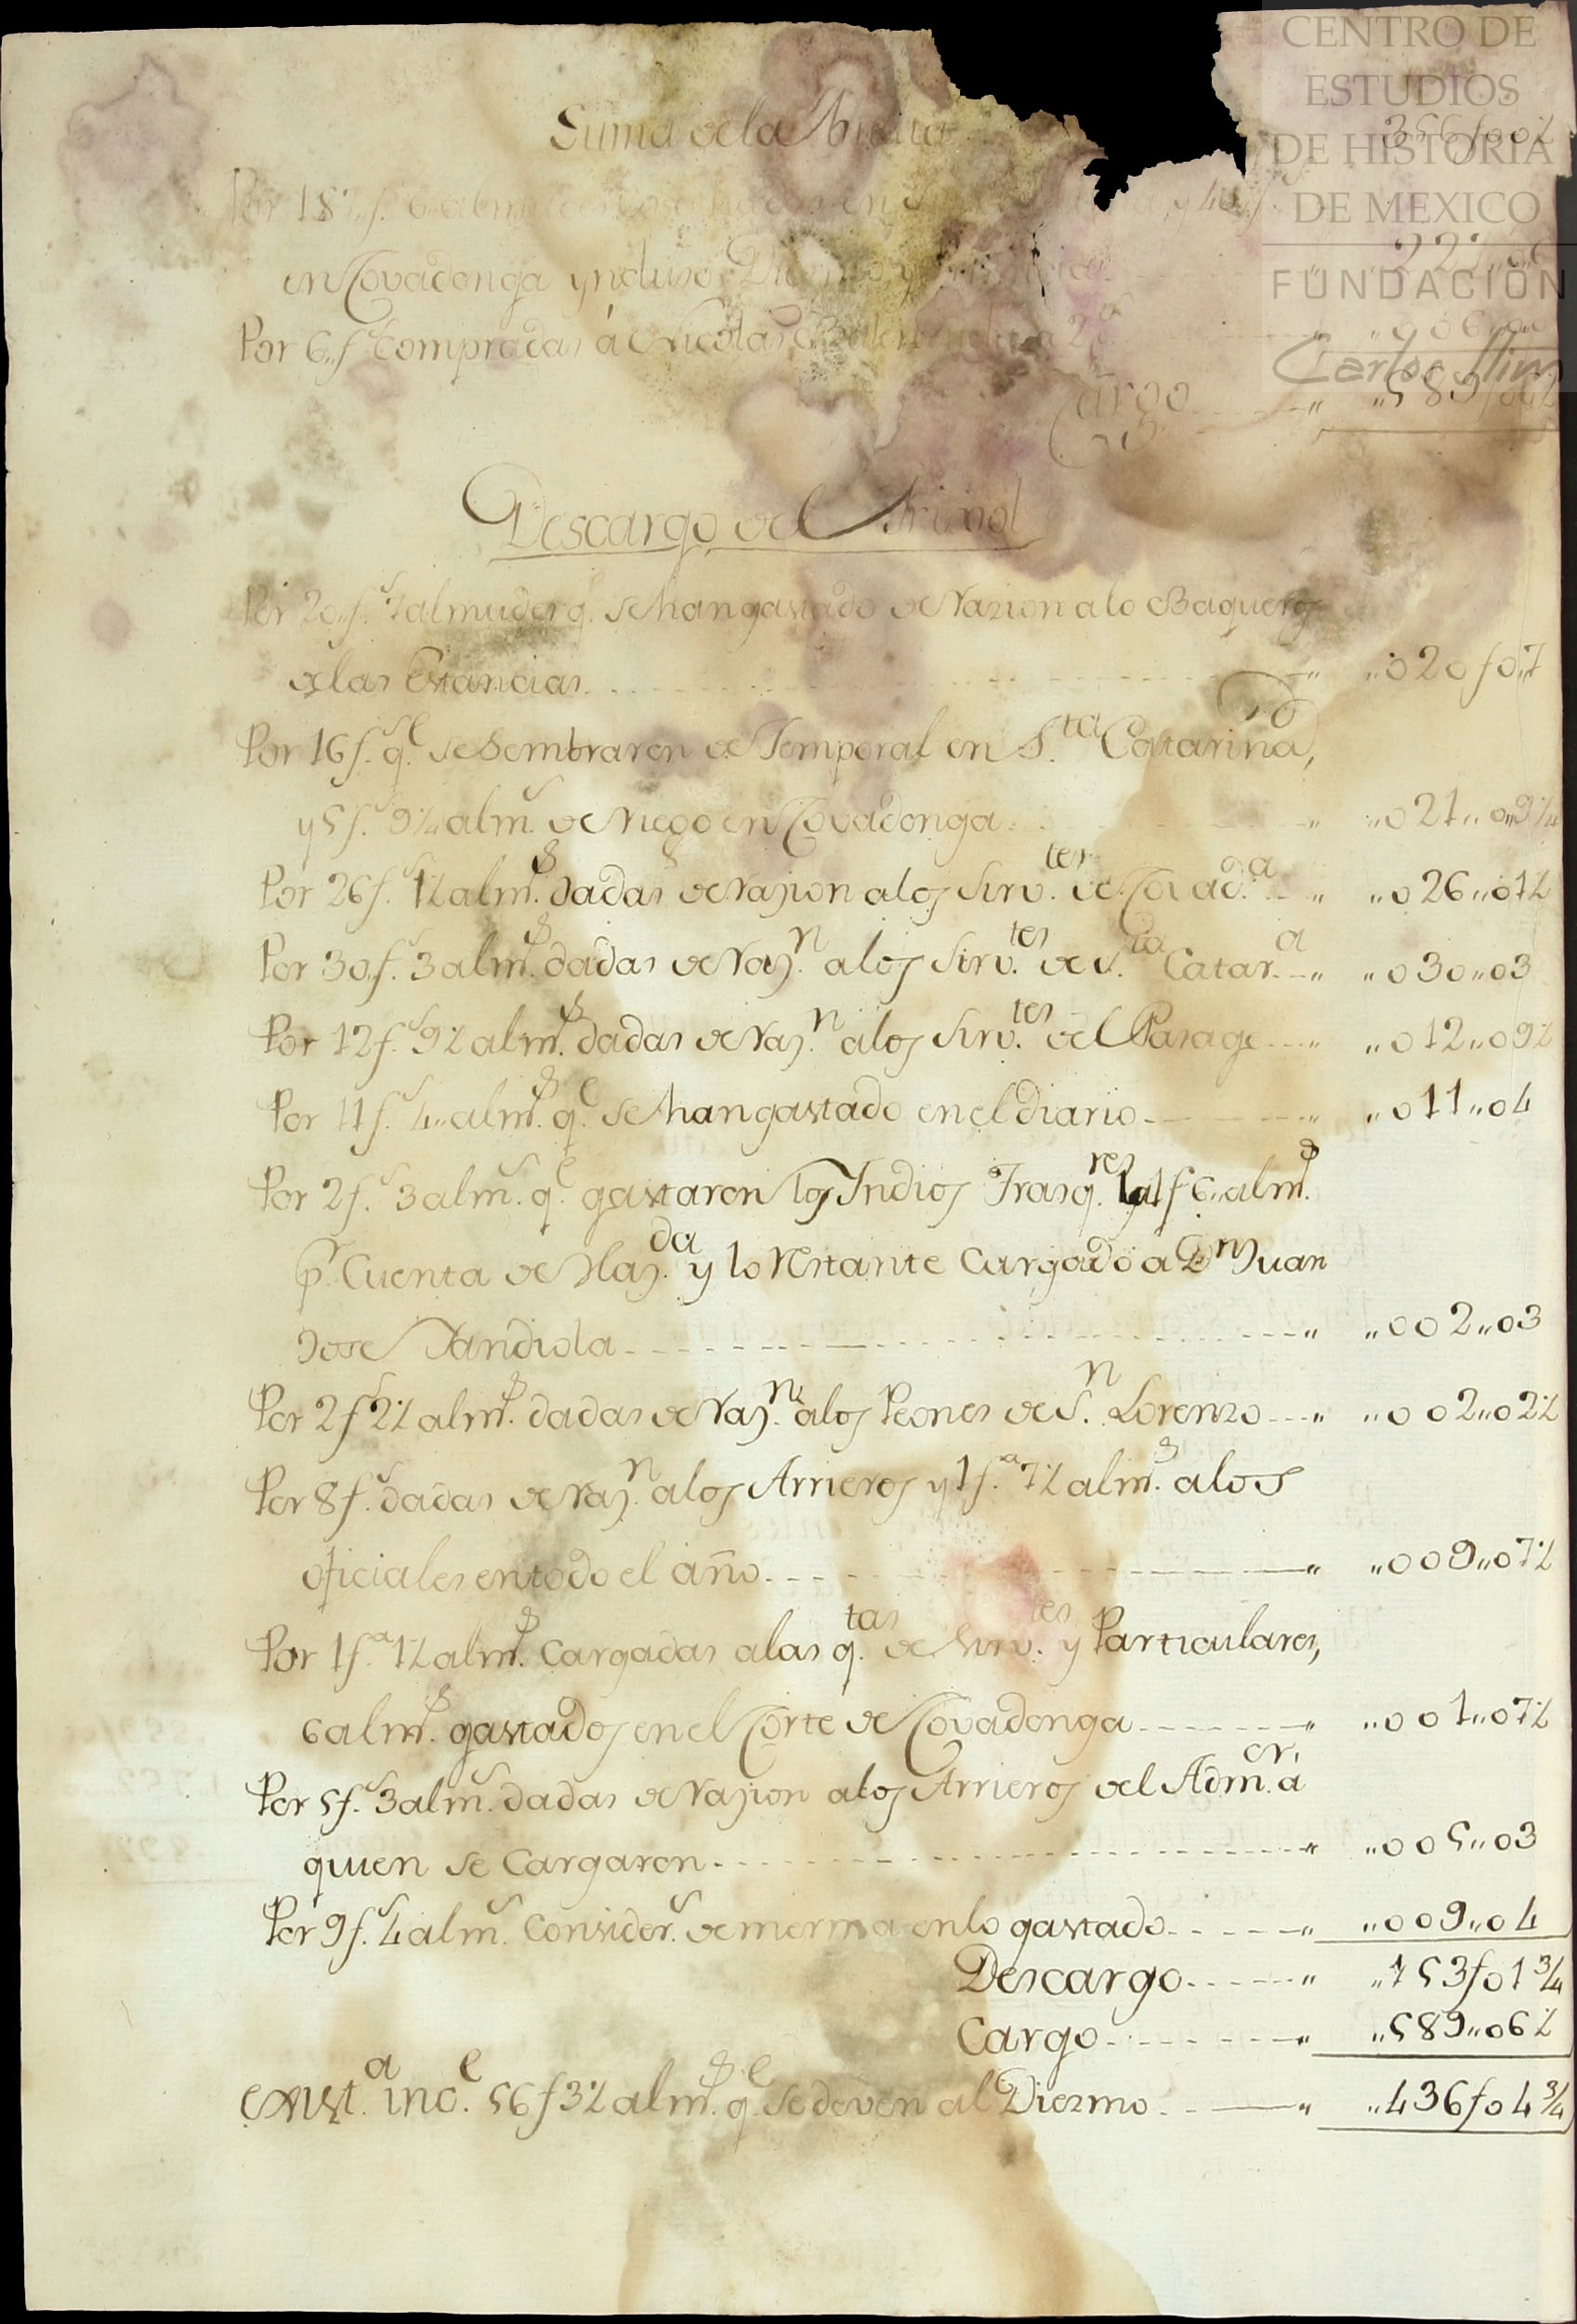 CENTRO DE
ESTUDIOS
DE HISTORIA
DE MEXICO
FUNDACIÓN
Carlos Slim
Suma de la
Por 187 f.
en Covadonga ynduso
Por 6,, f.s Compradas á Nicolas
Cargo ,, ,,589f06½
Descargo del Frixol
Por 20,, f.s 7 almudes q.e se han gastado de Razion a lo Baqueros
de las Estancias ,, ,,020f0,,7
Por 16 f.s q.e se Sembraron de Temporal en S.ta Catarina,
y 5 f.s 9¼ alm.s de riego en Covadonga ,, ,,021,,09¼
Por 26 f.s 1½ alm.s dadas de Razion a los Sirv.tes de Covad.a ,, ,,026,,01½
Por 30 f.s 3 alm.s dadas de Raz.n a los Sirv.tes de S.ta Catar.a ,, ,,030,,03
Por 12 f.s 9½ alm.s dadas de Raz.n a los Sirv.tes del Parage ,, ,,012,,09½
Por 11 f.s 4,, alm.s q.e se han gastado en el diario ,, ,,011,,04
Por 2 f.s 3 alm.s q.e gastaron los Indios Trasq.res la 1 f 6,, alm.s
p.r Cuenta de Haz.da y lo Restante Cargado a D.n Juan
Jose Yandiola ,, ,,002,,03
Por 2 f.s 2½ alm.s dadas de Raz.n a los Peones de S.n Lorenzo ,, ,,002,,02½
Por 8 f.s dadas de Raz.n a los Arrieros y 1 f.a 7½ alm.s a los
oficiales en todo el año ,, ,,009,,07½
Por 1 f.a 1½ alm.s Cargadas a las q.tas de Sirv.tes y Particulares,
6 alm.s gastados en el Corte de Covadonga ,, ,,001,,07½
Por 5 f.s 3 alm.s dadas de Razion a los Arrieros del Adm.or a
quien se Cargaron ,, ,,005,,03
Por 9 f.s 4 alm.s Consider.s de merma en lo gastado ,, ,,009,,04
Descargo ,, ,,153f01¾
Cargo ,, ,,589,,06½
exist.a inc.e 56 f 3½ alm.s q.e se deven al Diezmo ,, ,,436f04¾